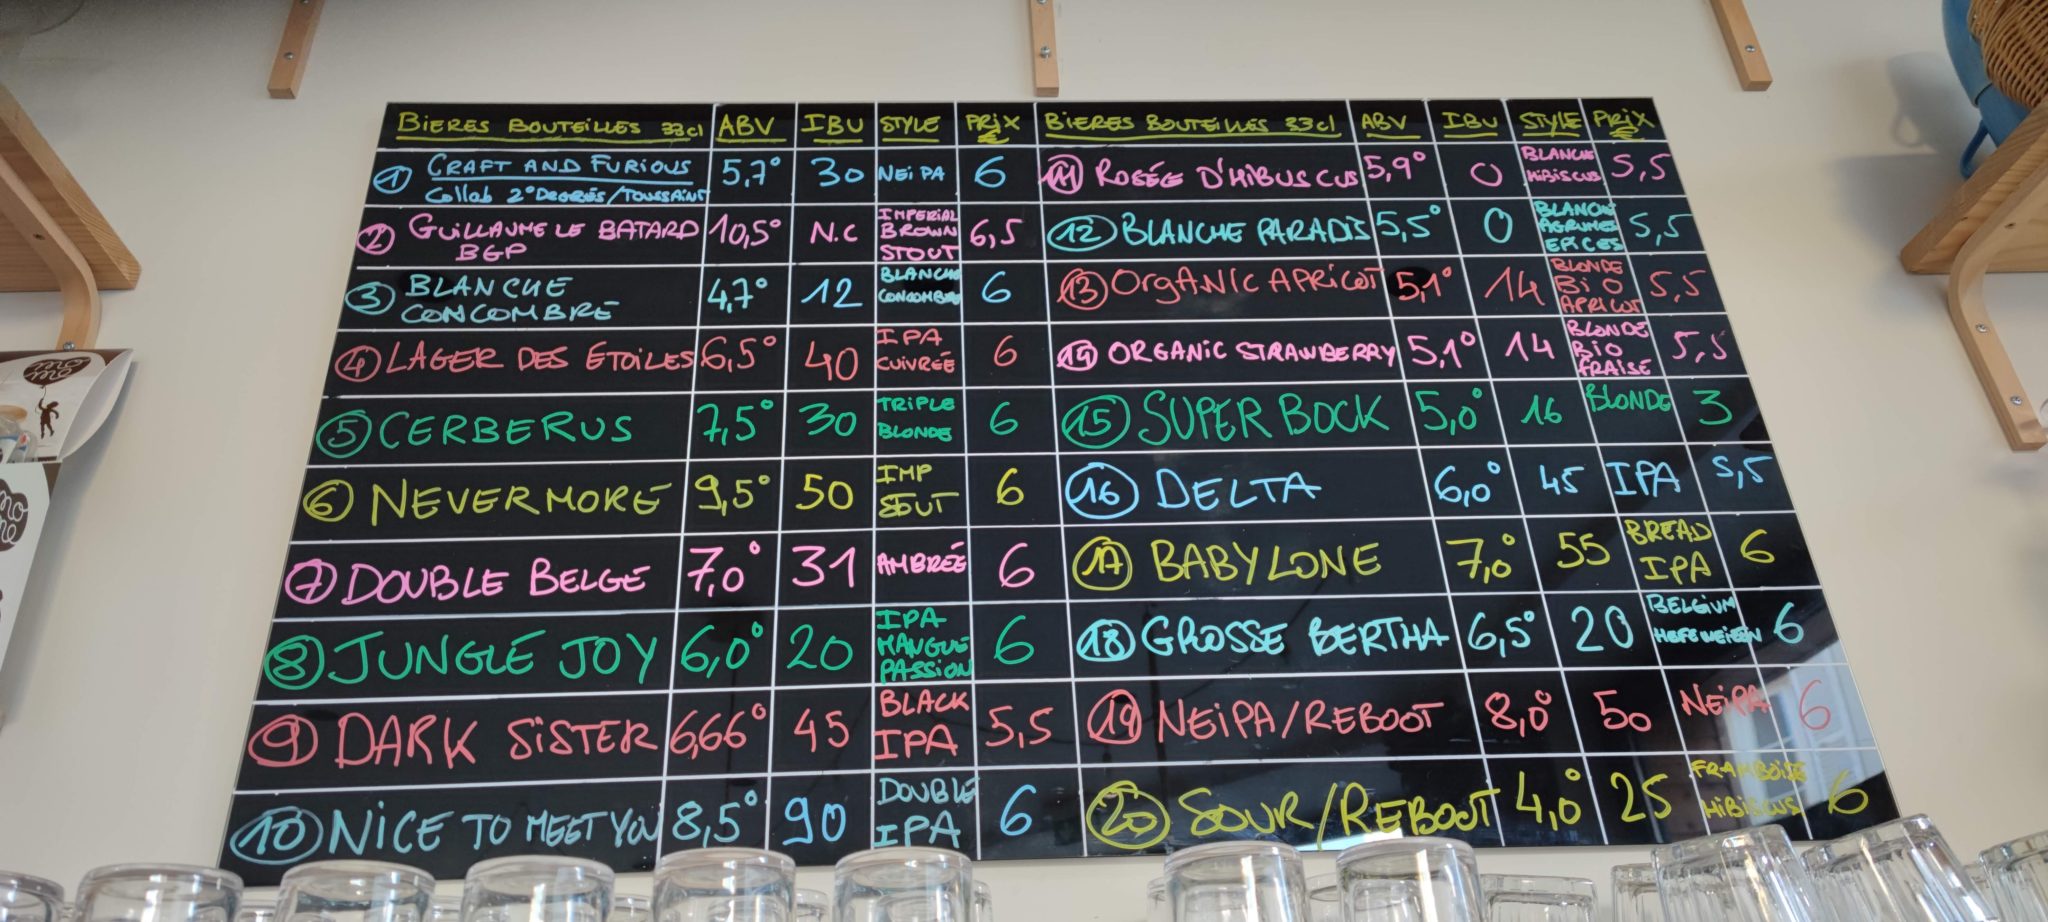 BIERES BOUTEILLES 33cl ABV IBU STYLE PRIX €
1 CRAFT AND FURIOUS 5,7° 30 NEIPA 6
Collab 2°DEGRÉS/TOUSSAINT
2 GUILLAUME LE BATARD BGP 10,5° N.C IMPERIAL BROWN STOUT 6,5
3 BLANCHE CONCOMBRE 4,7° 12 BLANCHE CONCOMBRE 6
4 LAGER DES ETOILES 6,5° 40 IPA CUIVRÉE 6
5 CERBERUS 7,5° 30 TRIPLE BLONDE 6
6 NEVERMORE 9,5° 50 IMP STOUT 6
7 DOUBLE BELGE 7,0° 31 AMBRÉE 6
8 JUNGLE JOY 6,0° 20 IPA MANGUE PASSION 6
9 DARK SISTER 6,66° 45 BLACK IPA 5,5
10 NICE TO MEET YOU 8,5° 90 DOUBLE IPA 6
BIERES BOUTEILLES 33cl ABV IBU STYLE PRIX €
11 ROSÉE D'HIBUSCUS 5,9° 0 BLANCHE HIBISCUS 5,5
12 BLANCHE PARADIS 5,5° 0 BLANCHE AGRUMES EPICES 5,5
13 ORGANIC APRICOT 5,1° 14 BLONDE BIO APRICOT 5,5
14 ORGANIC STRAWBERRY 5,1° 14 BLONDE BIO FRAISE 5,5
15 SUPER BOCK 5,0° 16 BLONDE 3
16 DELTA 6,0° 45 IPA 5,5
17 BABYLONE 7,0° 55 BREAD IPA 6
18 GROSSE BERTHA 6,5° 20 BELGIUM HEFEWEIZEN 6
19 NEIPA/REBOOT 8,0° 50 NEIPA 6
20 SOUR/REBOOT 4,0° 25 FRAMBOISE HIBISCUS 6
momo